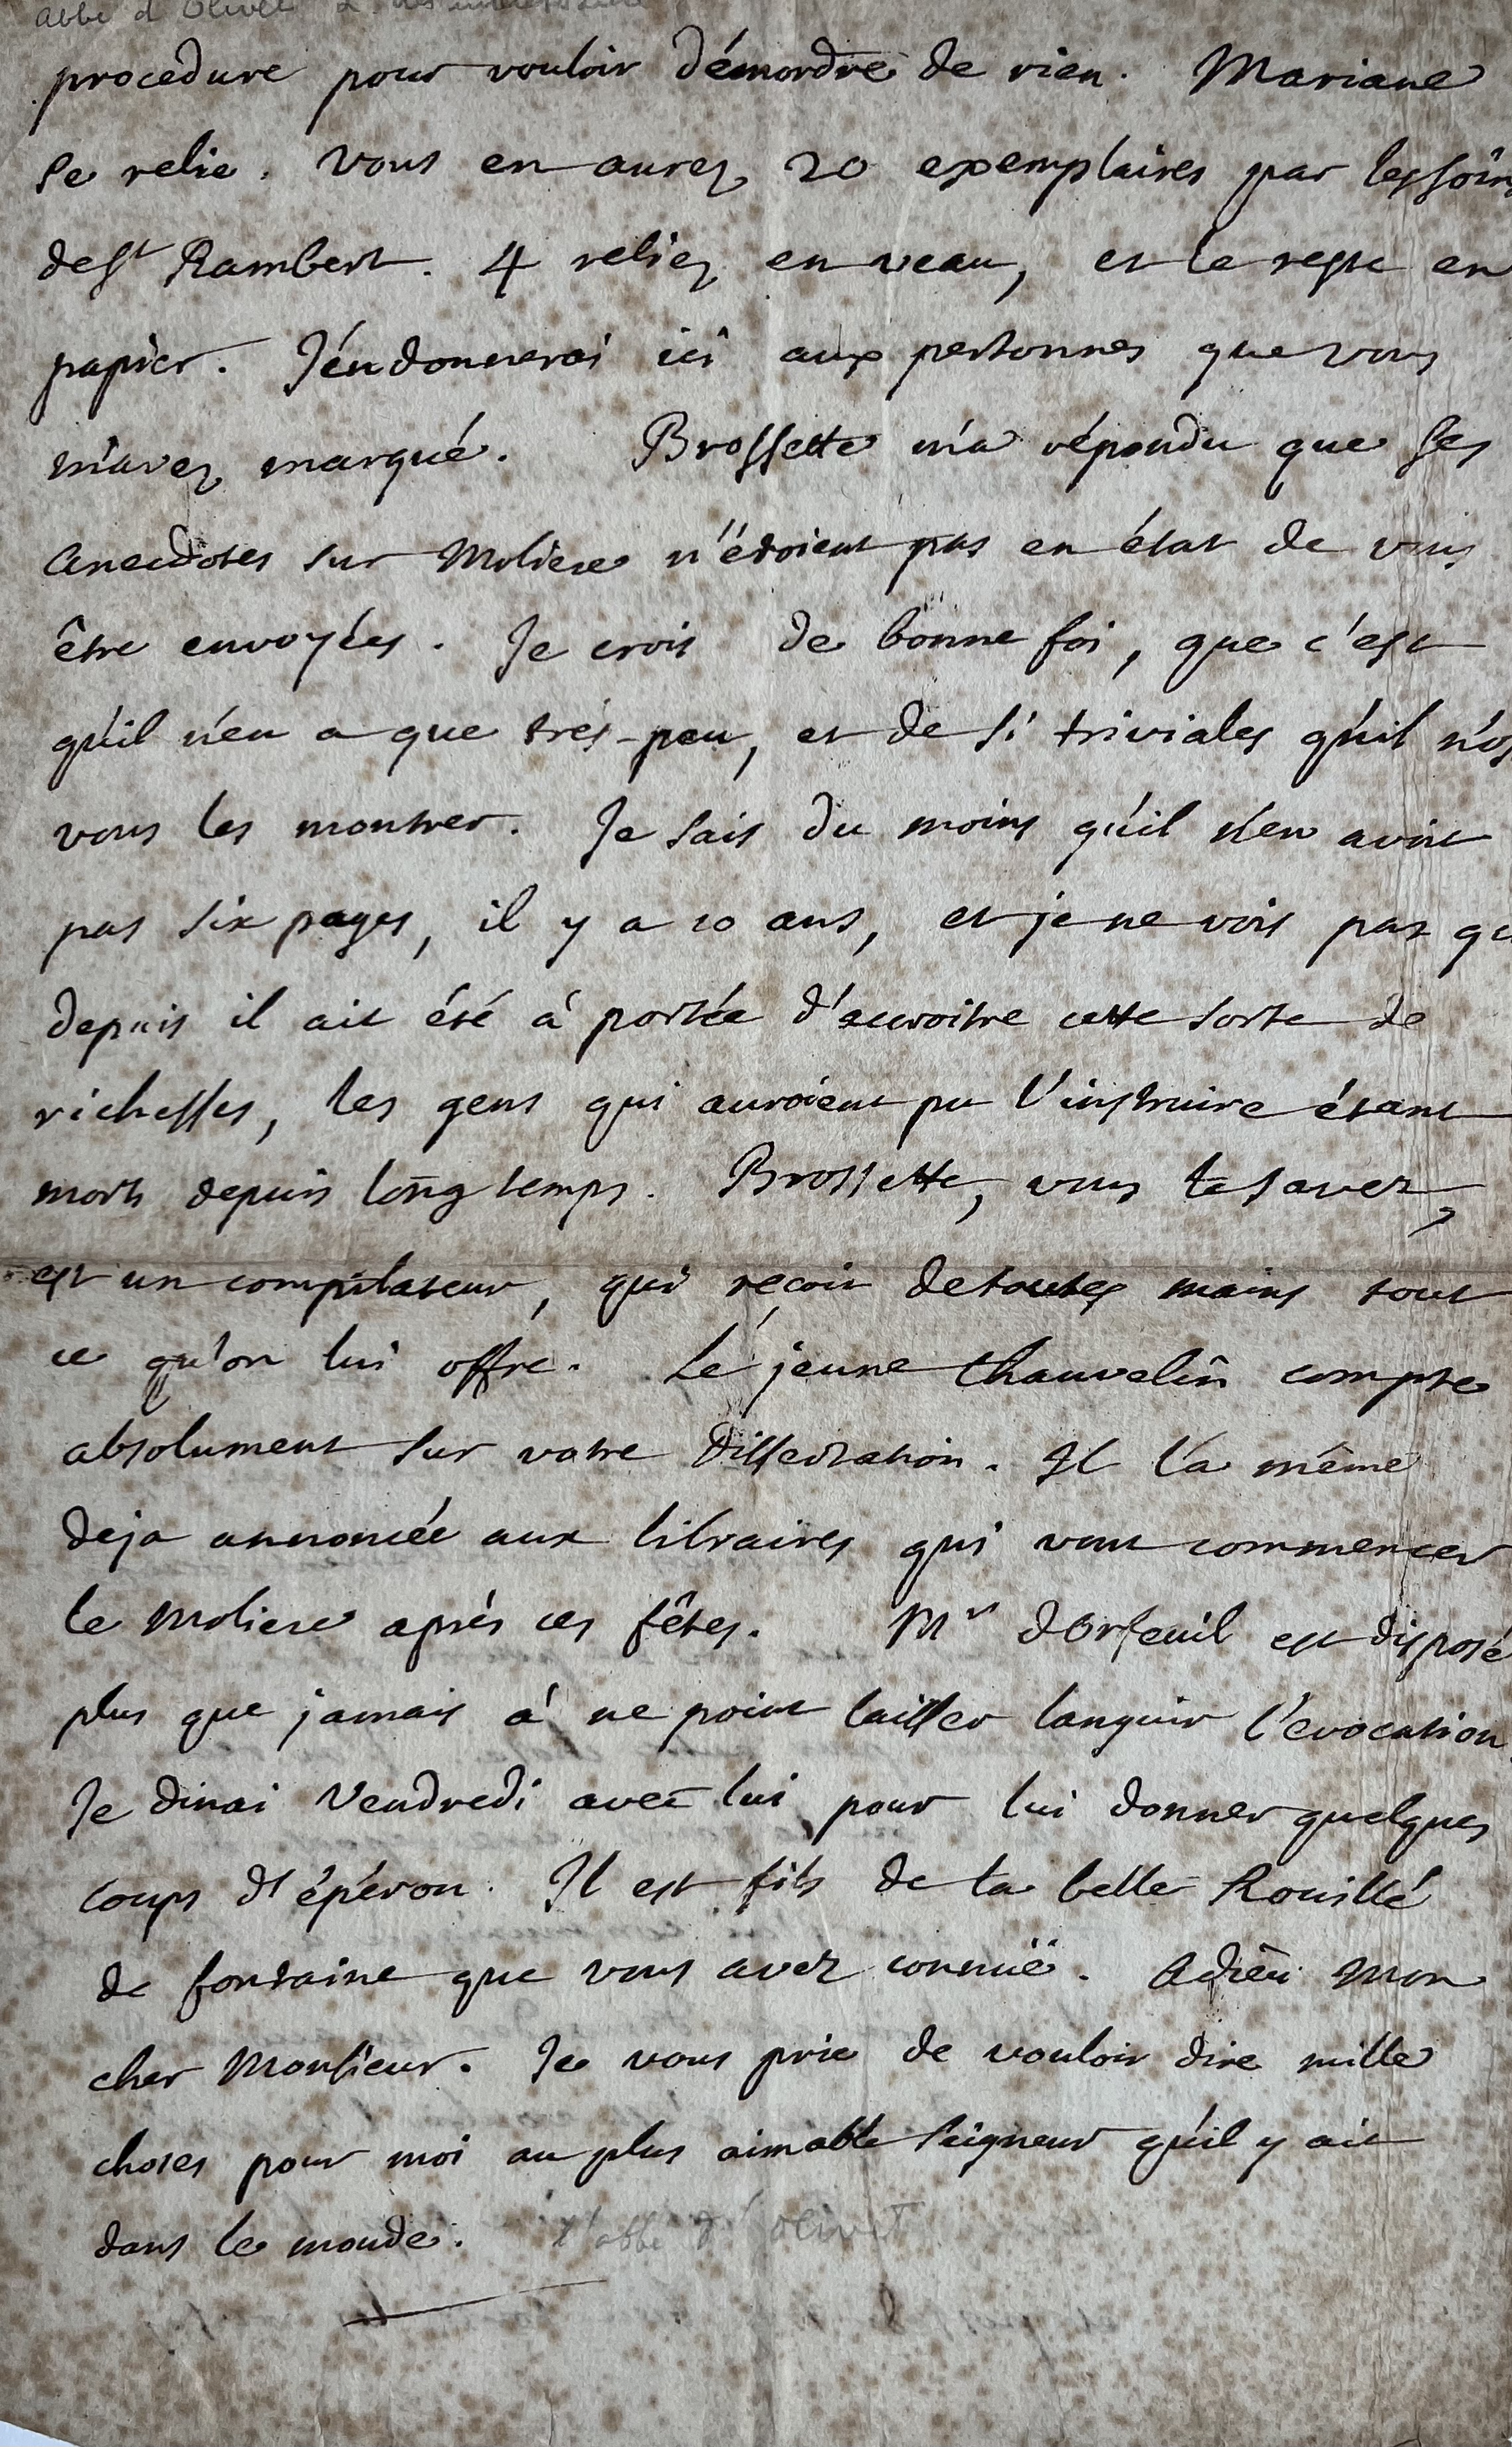 abbé d'Olivet à
procedure pour vouloir démordre de rien. Mariane
se relie. Vous en aurez 20 exemplaires par les soins
de St Rambert. 4 reliez en veau, et le reste en
papier. J'en donnerai ici aux personnes que vous
m'avez marqué. Brossette m'a répondu que ses
anecdotes sur Moliere n'étoient pas en état de vous
être envoyées. Je crois de bonne foi, que c'est
qu'il n'en a que trés-peu, et de si triviales qu'il n'os
vous les montrer. Je sais du moins qu'il n'en avoit
pas six pages, il y a 10 ans, et je ne vois pas qu
depuis il ait été à portée d'accroitre cette sorte de
richesses, les gens qui auroient pu l'instruire étant
morts depuis long temps. Brossette, vous le savez,
est un compilateur, qui reçoit de toutes mains tout
ce qu'on lui offre. Le jeune Chauvelin compte
absolument sur votre Dissertation. Il l'a même
deja annoncée aux libraires qui vont commencer
le Moliere après ces fêtes. Mr d'Orfeuil est disposé
plus que jamais à ne point laisser languir l'evocation
Je dinai Vendredi avec lui pour lui donner quelques
coups d'épéron. Il est fils de la belle Rouillé
de fontaine que vous avez connuë. Adieu mon
cher Monsieur. Je vous prie de vouloir dire mille
choses pour moi au plus aimable Seigneur qu'il y ait
dans le monde. l'abbé d'Olivet